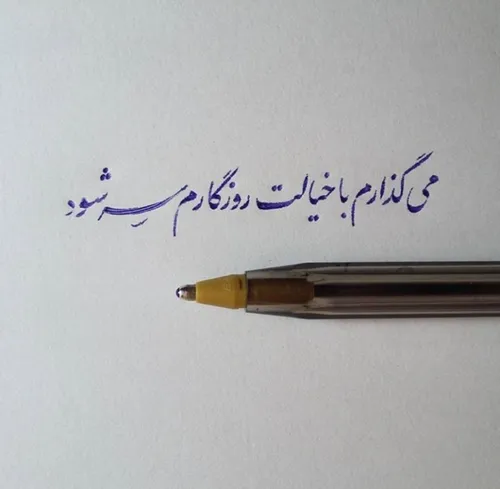 می گذارم با خیالت روزگارم سِر شود